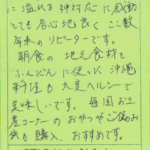 に溢れる神対応に感動
とても居心地良く ここ数
年来のリピーターです。
朝食の 地元食材を
ふんだんに使った 沖縄
料理も 大変ヘルシーで
美味しいです。毎回お土
産コーナーの おやつや
も購入、おすすめです。